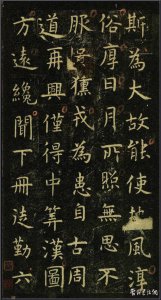 斯為大故能使風淳
俗厚日月所照無思不
服獯戎為患自古周
道再興僅得中筭漢圖
方遠纔聞下冊徒勤六